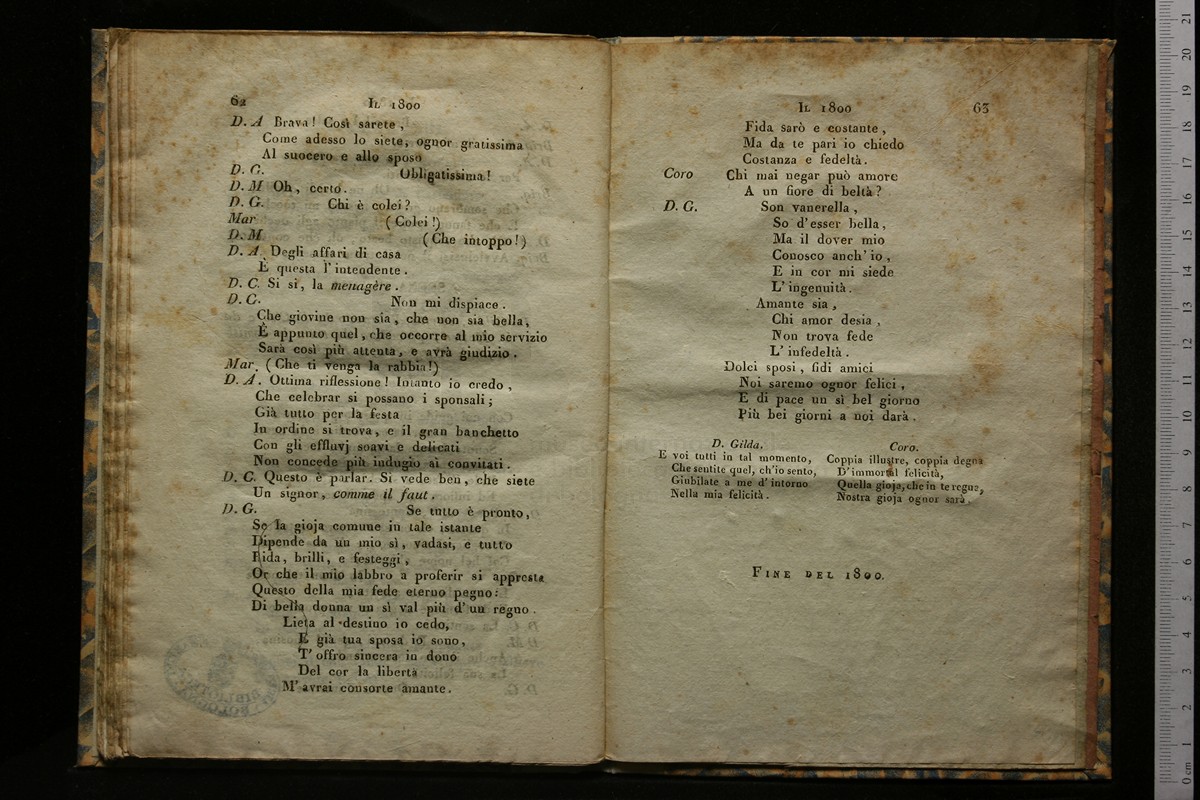 62 IL 1800
D. A Brava! Così sarete,
Come adesso lo siete, ognor gratissima
Al suocero e allo sposo
D. G. Obligatissima!
D. M Oh, certo.
D. G. Chi è colei?
Mar (Colei!)
D. M (Che intoppo!)
D. A. Degli affari di casa
È questa l'intendente.
D. C. Si sì, la menagère.
D. G. Non mi dispiace.
Che giovine non sia, che non sia bella,
È appunto quel, che occorre al mio servizio
Sarà così più attenta, e avrà giudizio.
Mar. (Che ti venga la rabbia!)
D. A. Ottima riflessione! Intanto io credo,
Che celebrar si possano i sponsali;
Già tutto per la festa
In ordine si trova, e il gran banchetto
Con gli effluvj soavi e delicati
Non concede più indugio ai convitati.
D. C. Questo è parlar. Si vede ben, che siete
Un signor, comme il faut.
D. G. Se tutto è pronto,
Se la gioja comune in tale istante
Dipende da un mio sì, vadasi, e tutto
Rida, brilli, e festeggi,
Or che il mio labbro a proferir si appresta
Questo della mia fede eterno pegno:
Di bella donna un sì val più d'un regno.
Lieta al destino io cedo,
E già tua sposa io sono,
T'offro sincera in dono
Del cor la libertà
M'avrai consorte amante.
IL 1800 63
Fida sarò e costante,
Ma da te pari io chiedo
Costanza e fedeltà.
Coro Chi mai negar può amore
A un fiore di beltà?
D. G. Son vanerella,
So d'esser bella,
Ma il dover mio
Conosco anch'io,
E in cor mi siede
L'ingenuità.
Amante sia,
Chi amor desia,
Non trova fede
L'infedeltà.
Dolci sposi, fidi amici
Noi saremo ognor felici,
E di pace un sì bel giorno
Più bei giorni a noi darà.
D. Gilda.
E voi tutti in tal momento,
Che sentite quel, ch'io sento,
Giubilate a me d'intorno
Nella mia felicità.
Coro.
Coppia illustre, coppia degna
D'immortal felicità,
Quella gioja, che in te regna,
Nostra gioja ognor sarà.
FINE DEL 1800.